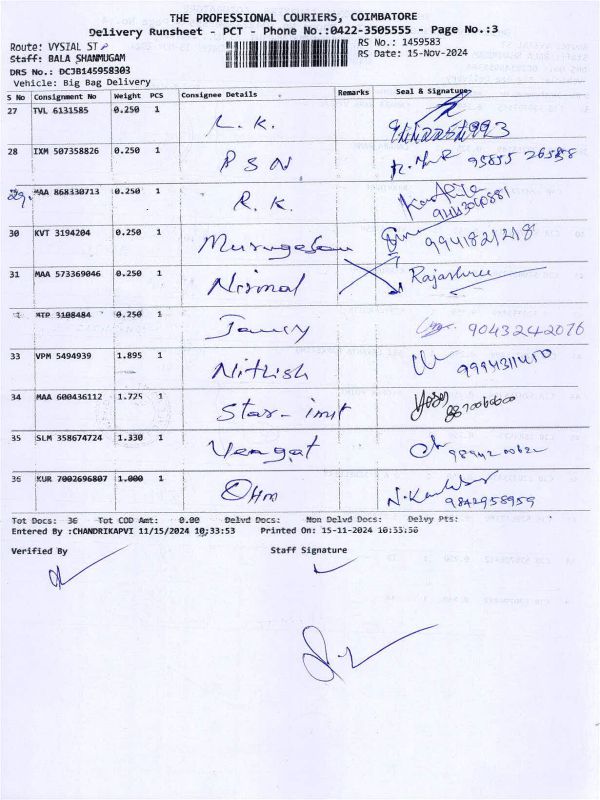 THE PROFESSIONAL COURIERS, COIMBATORE
Delivery Runsheet - PCT - Phone No.:0422-3505555 - Page No.:3
Route: VYSIAL ST RS No.: 1459583
Staff: BALA SHANMUGAM RS Date: 15-Nov-2024
DRS No.: DCJB145958303
Vehicle: Big Bag Delivery
S No Consignment No Weight PCS Consignee Details Remarks Seal & Signature
27 TVL 6131585 0.250 1 L. K.
28 IXM 507358826 0.250 1 P S N
29. MAA 868330713 0.250 1 R. K.
30 KVT 3194204 0.250 1 Murugesan 9941821218
31 MAA 573369046 0.250 1 Nirmal Rajashree
3108484 0.250 1 Jancy 9043242076
33 VPM 5494939 1.895 1 Nithish
34 MAA 600436112 1.725 1 Star-
35 SLM 358674724 1.330 1 Vengat
36 KUR 7002696807 1.000 1 Ohm 9842958959
Tot Docs: 36 Tot COD Amt: 0.00 Delvd Docs: Non Delvd Docs: Delvy Pts:
Entered By :CHANDRIKAPVI 11/15/2024 10:33:53 Printed On: 15-11-2024 10:33:56
Verified By Staff Signature